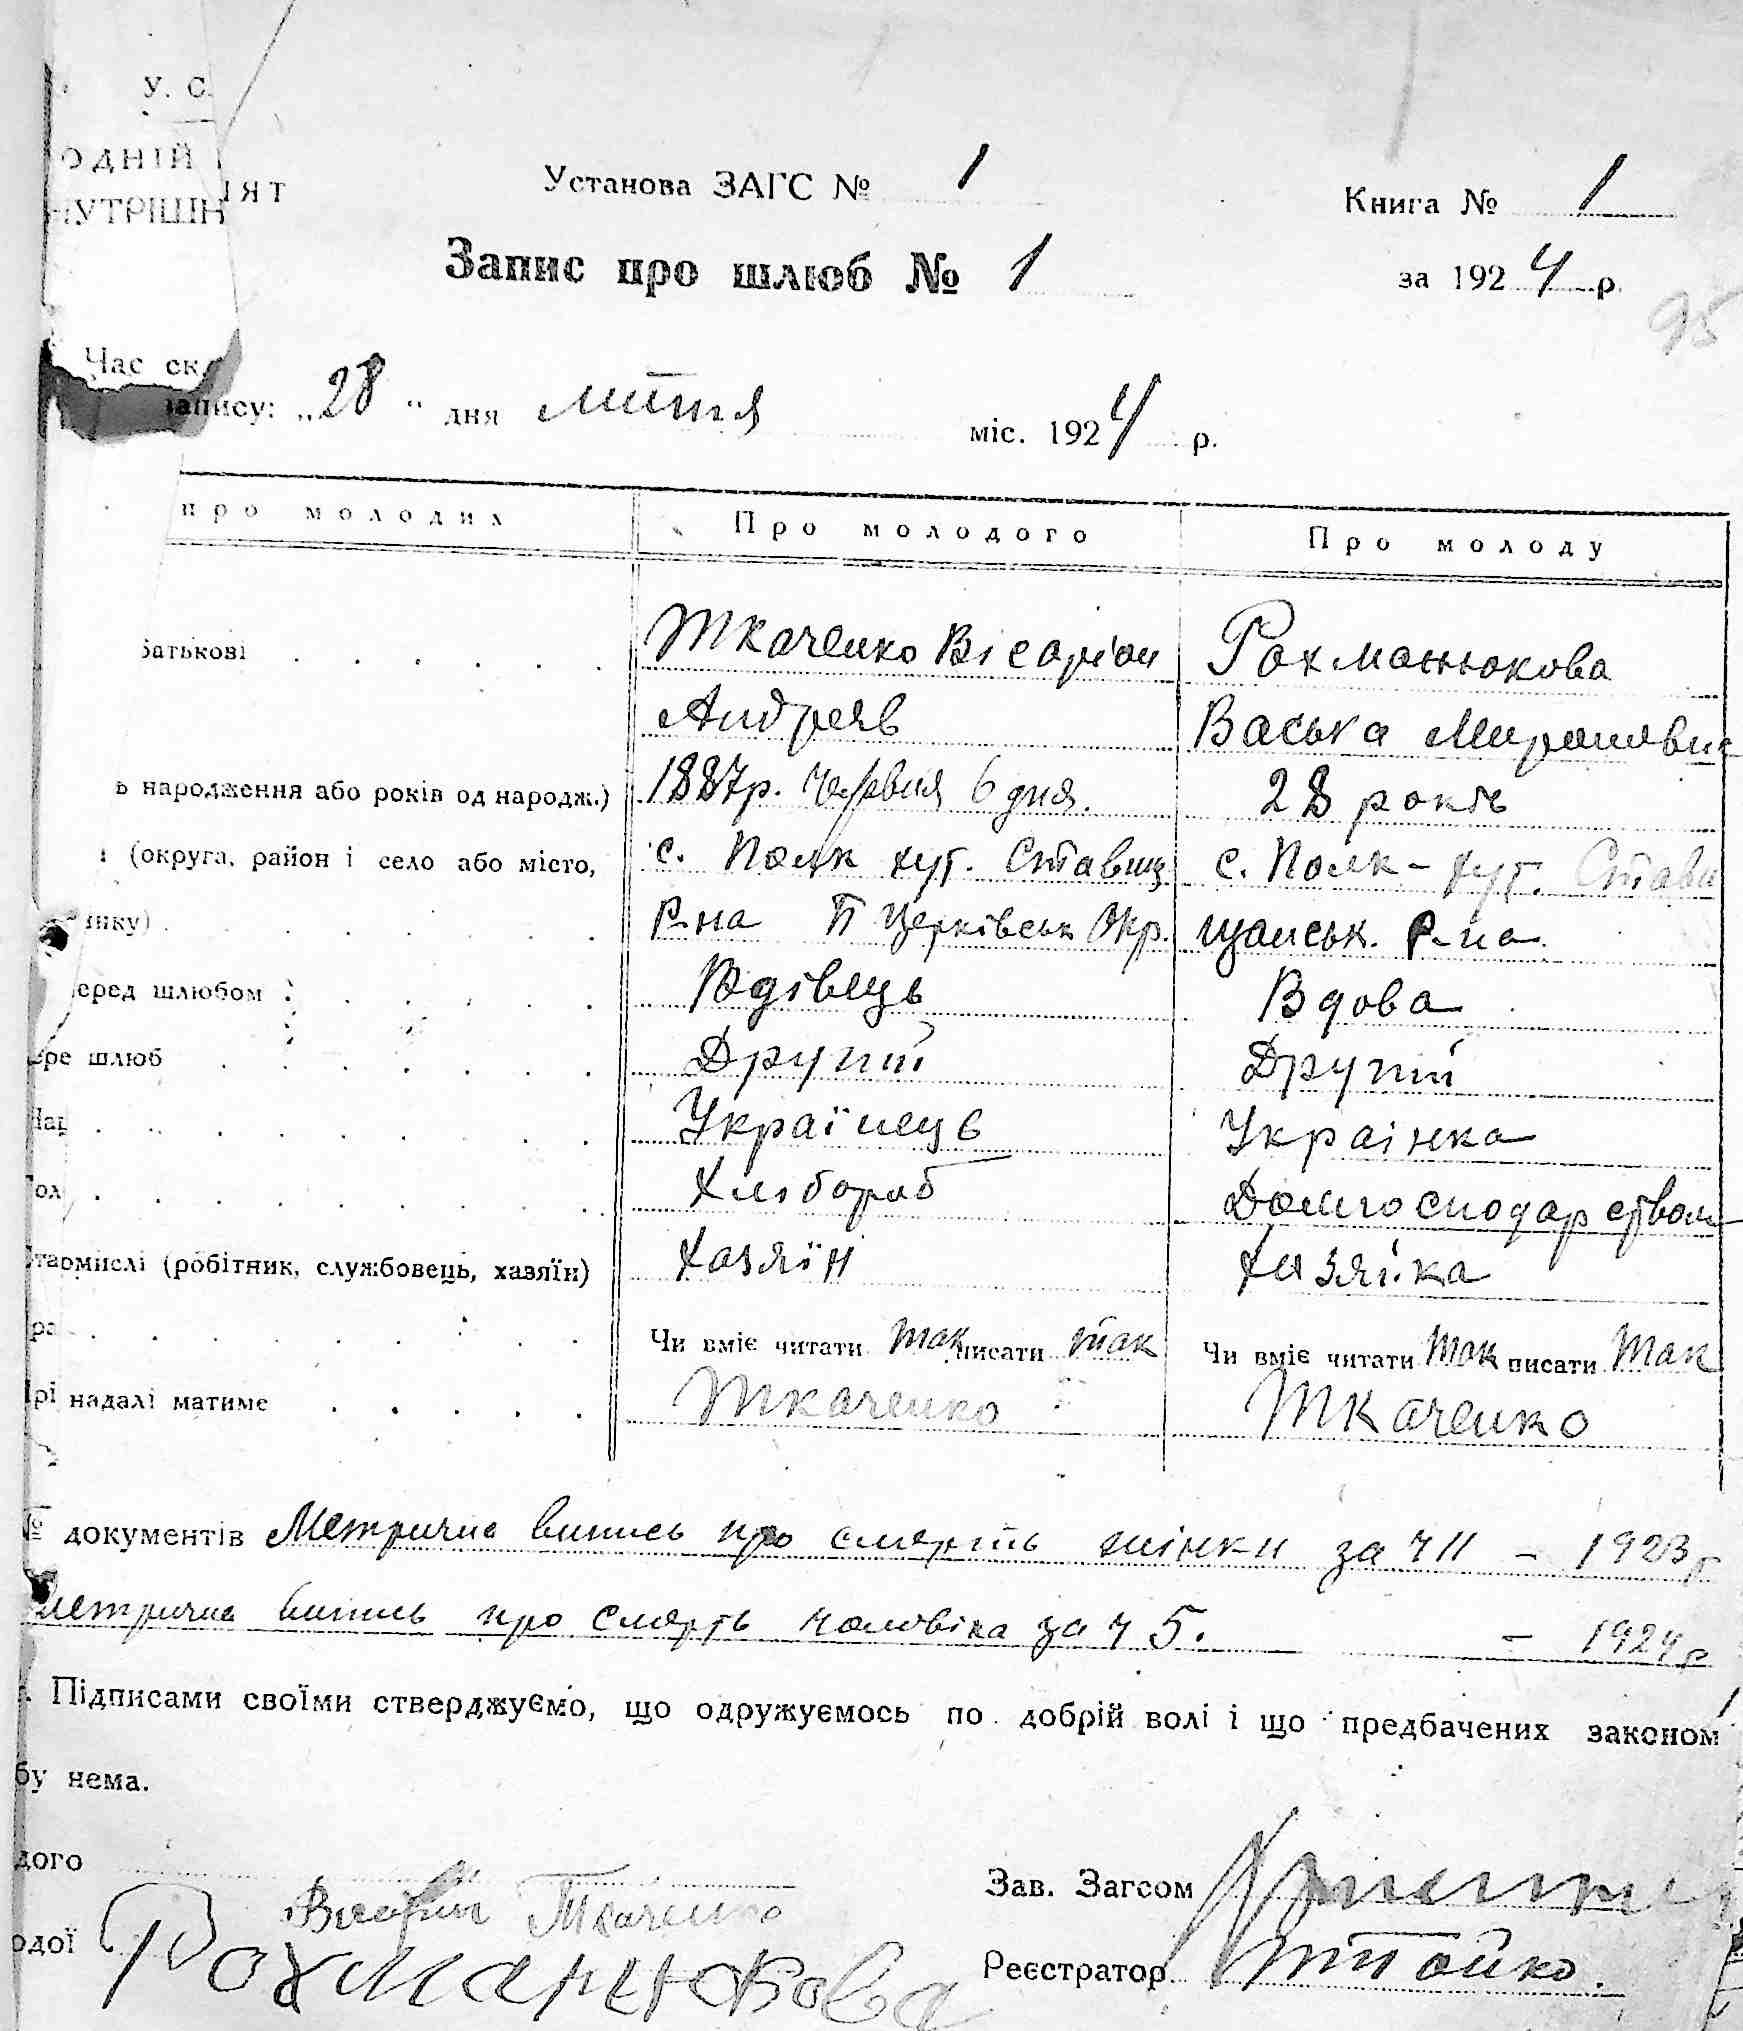 У. С.
ОДНІЙ
ІЯТ
НУТРІШН
Установа ЗАГС № 1
Книга № 1
Запис про шлюб № 1
за 1924 р.
95
Час ск
запису: „28" дня липня міс. 1924 р.
про молодих Про молодого Про молоду
батькові Ткаченко Вісаріон Рохманюкова
Андреяв Васька
ь народження або років од народж.) 1887р. Червня 6 дня. 28 років
(округа, район і село або місто, с. Полк хут. Ставищ с. Полк- хут. Стави
инку) Р-на Б Церківськ Окр. щанськ. Р-на
еред шлюбом Вдівець Вдова
ере шлюб Другий Другий
Нац Українець Українка
Гол Хлібороб
промислі (робітник, службовець, хазяїн) Хазяїн Хазяйка
Чи вміє читати Так писати так Чи вміє читати Так писати Так
рі надалі матиме Ткаченко Ткаченко
№ документів Метрична випись про смерть жінки за ч 11 – 1923 р
метрична випись про смерть чоловіка за ч 5. – 1924 р
Підписами своїми стверджуємо, що одружуємось по добрій волі і що предбачених законом
бу нема.
дого Ткаченко
Зав. Загсом
одої Рохманюкова
Реєстратор